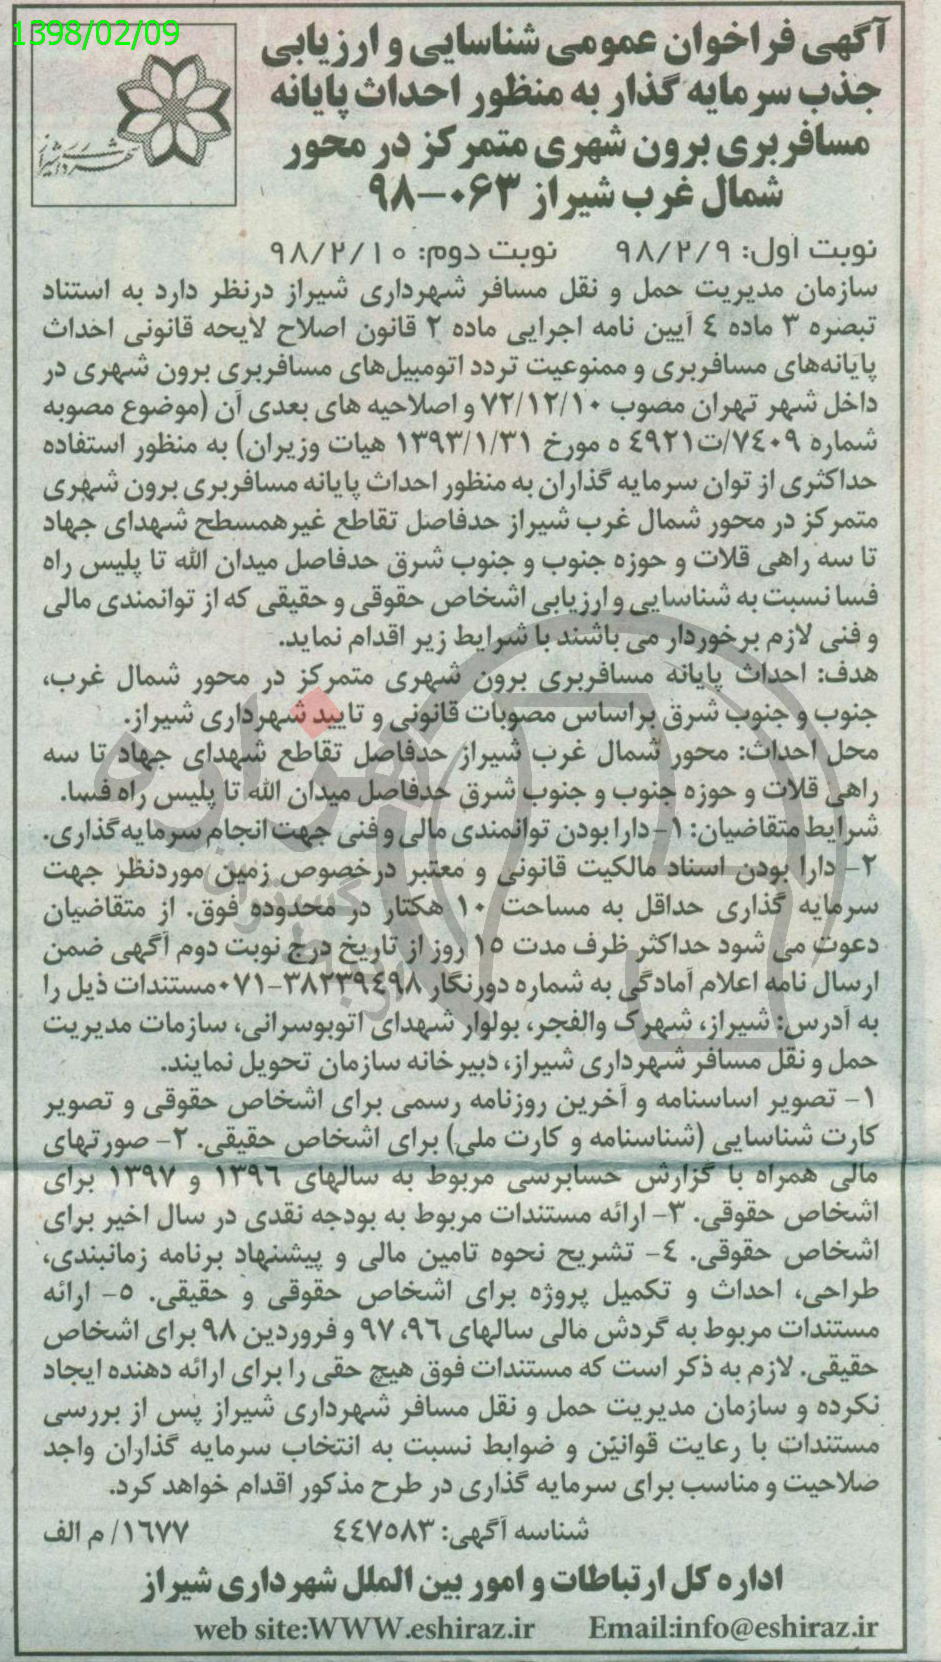 1398/02/09
آگهی فراخوان عمومی شناسایی و ارزیابی
جذب سرمایه گذار به منظور احداث پایانه
مسافربری برون شهری متمرکز در محور
شمال غرب شیراز ۰۶۳-۹۸
شهرداری شیراز
نوبت اول: ۹۸/۲/۹ نوبت دوم: ۹۸/۲/۱۰
سازمان مدیریت حمل و نقل مسافر شهرداری شیراز درنظر دارد به استناد
تبصره ۳ ماده ٤ آیین نامه اجرایی ماده ۲ قانون اصلاح لایحه قانونی احداث
پایانه‌های مسافربری و ممنوعیت تردد اتومبیل‌های مسافربری برون شهری در
داخل شهر تهران مصوب ۷۲/۱۲/۱۰ و اصلاحیه های بعدی آن (موضوع مصوبه
شماره ۷٤۰۹/ت٤۹۲۱ ه مورخ ۱۳۹۳/۱/۳۱ هیات وزیران) به منظور استفاده
حداکثری از توان سرمایه گذاران به منظور احداث پایانه مسافربری برون شهری
متمرکز در محور شمال غرب شیراز حدفاصل تقاطع غیرهمسطح شهدای جهاد
تا سه راهی قلات و حوزه جنوب و جنوب شرق حدفاصل میدان الله تا پلیس راه
فسا نسبت به شناسایی و ارزیابی اشخاص حقوقی و حقیقی که از توانمندی مالی
و فنی لازم برخوردار می باشند با شرایط زیر اقدام نماید.
هدف: احداث پایانه مسافربری برون شهری متمرکز در محور شمال غرب،
جنوب و جنوب شرق براساس مصوبات قانونی و تایید شهرداری شیراز.
محل احداث: محور شمال غرب شیراز حدفاصل تقاطع شهدای جهاد تا سه
راهی قلات و حوزه جنوب و جنوب شرق حدفاصل میدان الله تا پلیس راه فسا.
شرایط متقاضیان: ۱- دارا بودن توانمندی مالی و فنی جهت انجام سرمایه گذاری.
۲- دارا بودن اسناد مالکیت قانونی و معتبر درخصوص زمین موردنظر جهت
سرمایه گذاری حداقل به مساحت ۱۰ هکتار در محدوده فوق. از متقاضیان
دعوت می شود حداکثر ظرف مدت ۱۵ روز از تاریخ درج نوبت دوم آگهی ضمن
ارسال نامه اعلام آمادگی به شماره دورنگار ۳۸۲۳۹٤۹۸-۰۷۱ مستندات ذیل را
به آدرس: شیراز، شهرک والفجر، بولوار شهدای اتوبوسرانی، سازمات مدیریت
حمل و نقل مسافر شهرداری شیراز، دبیرخانه سازمان تحویل نمایند.
۱- تصویر اساسنامه و آخرین روزنامه رسمی برای اشخاص حقوقی و تصویر
کارت شناسایی (شناسنامه و کارت ملی) برای اشخاص حقیقی. ۲- صورتهای
مالی همراه با گزارش حسابرسی مربوط به سالهای ۱۳۹٦ و ۱۳۹۷ برای
اشخاص حقوقی. ۳- ارائه مستندات مربوط به بودجه نقدی در سال اخیر برای
اشخاص حقوقی. ٤- تشریح نحوه تامین مالی و پیشنهاد برنامه زمانبندی،
طراحی، احداث و تکمیل پروژه برای اشخاص حقوقی و حقیقی. ۵- ارائه
مستندات مربوط به گردش مالی سالهای ۹٦، ۹۷ و فروردین ۹۸ برای اشخاص
حقیقی. لازم به ذکر است که مستندات فوق هیچ حقی را برای ارائه دهنده ایجاد
نکرده و سازمان مدیریت حمل و نقل مسافر شهرداری شیراز پس از بررسی
مستندات با رعایت قوانین و ضوابط نسبت به انتخاب سرمایه گذاران واجد
صلاحیت و مناسب برای سرمایه گذاری در طرح مذکور اقدام خواهد کرد.
شناسه آگهی: ٤٤۷۵۸۳ ۱٦۷۷/ م الف
اداره کل ارتباطات و امور بین الملل شهرداری شیراز
web site:WWW.eshiraz.ir Email:info@eshiraz.ir